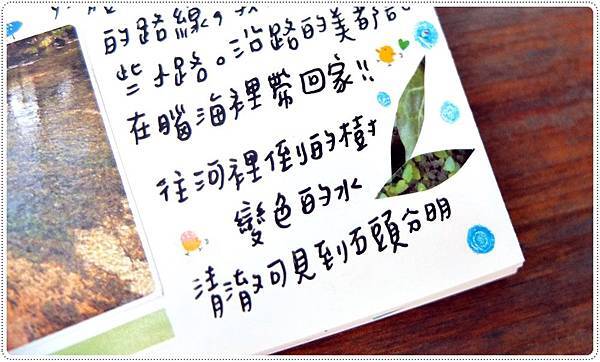 的路線,
些小路。沿路的美都
在腦海裡帶回家!!
往河裡倒的樹
變色的水
清澈可見到石頭分明